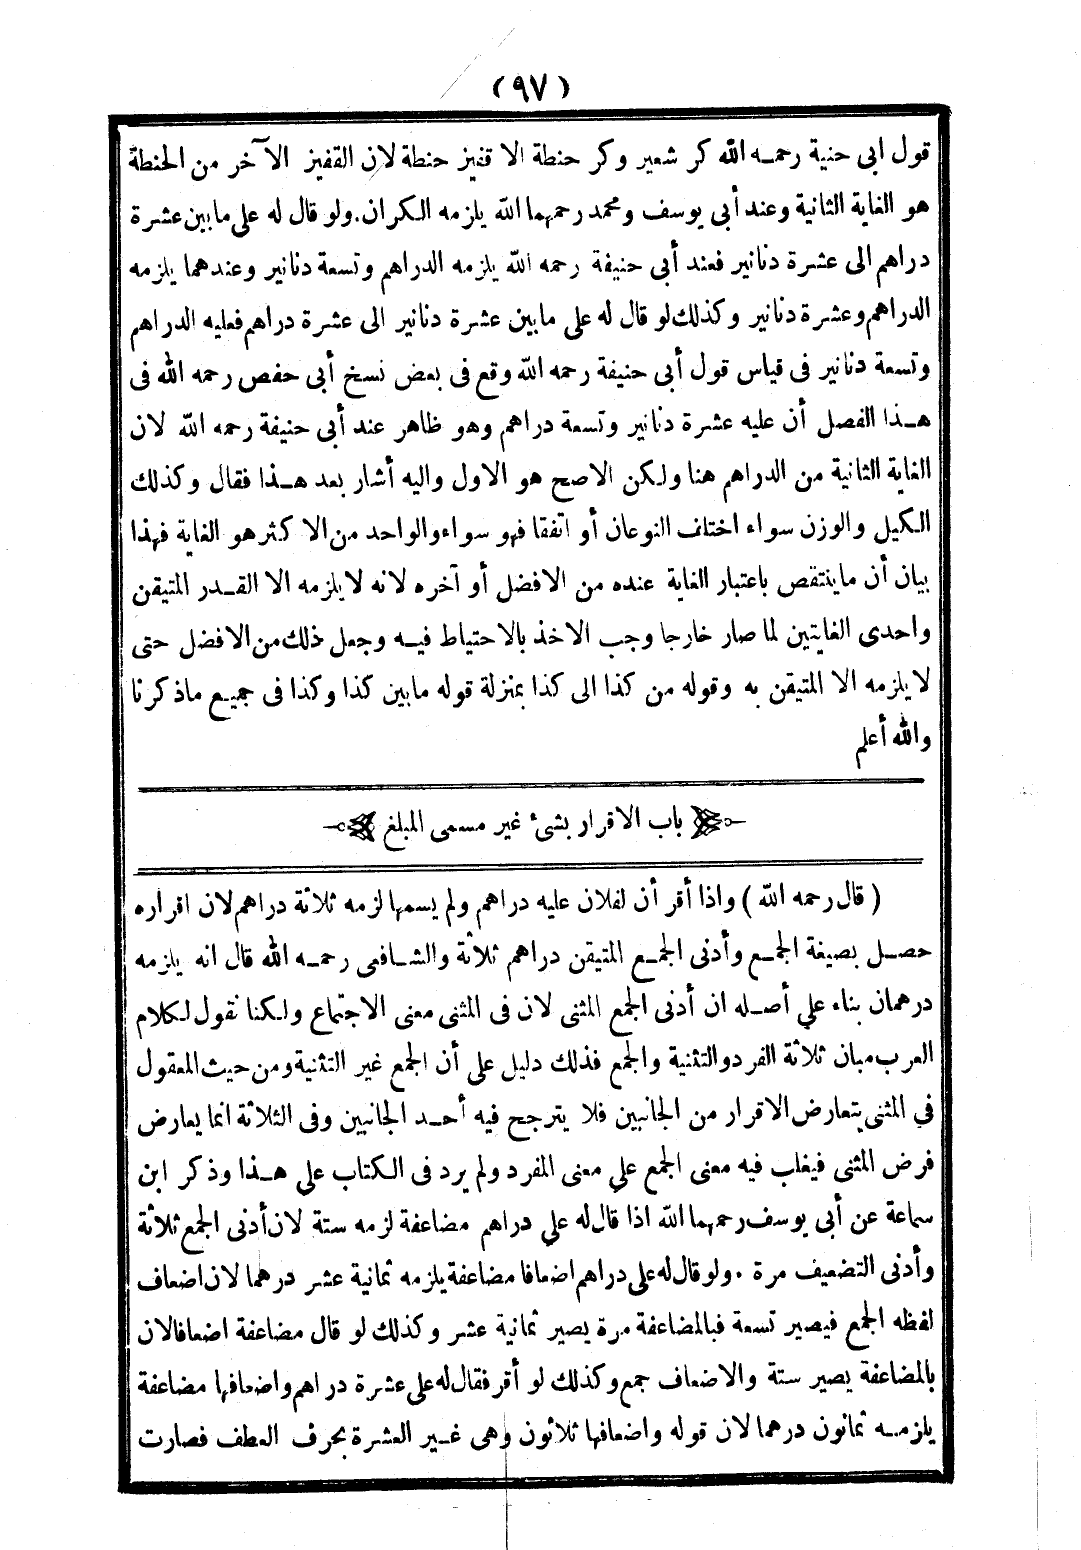 (٩٧)
قول ابى حنية رحمـه الله كر شعير وكر حنطة الا قفيز حنطة لان القفيز الآخر من الحنطة
هو الغاية الثانية وعند أبى يوسف ومحمد رحمهما الله يلزمه الكران. ولو قال له على مابين عشرة
دراهم الى عشرة دنانير فعند أبى حنيفة رحمه الله يلزمه الدراهم وتسعة دنانير وعندهما يلزمه
الدراهم وعشرة دنانير وكذلك لو قال له على مابين عشرة دنانير الى عشرة دراهم فعليه الدراهم
وتسعة دنانير فى قياس قول أبى حنيفة رحمه الله وقع فى بعض نسخ أبى حفص رحمه الله فى
هـذا الفصل أن عليه عشرة دنانير وتسعة دراهم وهو ظاهر عند أبى حنيفة رحمه الله لان
الغاية الثانية من الدراهم هنا ولكن الاصح هو الاول واليه أشار بعد هـذا فقال وكذلك
الكيل والوزن سواء اختلف النوعان أو اتفقا فهو سواء والواحد من الاكثر هو الغاية فهذا
بيان أن ماينتقص باعتبار الغاية عنده من الافضل أو آخره لانه لا يلزمه الا القـدر المتيقن
واحدى الغايتين لما صار خارجا وجب الاخذ بالاحتياط فيـه وجعل ذلك من الافضل حتى
لا يلزمه الا المتيقن به وقوله من كذا الى كذا بمنزلة قوله مابين كذا وكذا فى جميع ماذكرنا
والله أعلم
باب الاقرار بشئ غير مسمى المبلغ
(قال رحمه الله) واذا أقر أن لفلان عليه دراهم ولم يسمها لزمه ثلاثة دراهم لان اقراره
حصـل بصيغة الجمـع وأدنى الجمـع المتيقن دراهم ثلاثة والشـافعى رحمـه الله قال انه يلزمه
درهمان بناء على أصـله ان أدنى الجمع المثنى لان فى المثنى معنى الاجتماع ولكنا نقول لكلام
العرب مبان ثلاثة الفرد والتثنية والجمع فذلك دليل على أن الجمع غير التثنية ومن حيث المعقول
في المثنى يتعارض الاقرار من الجانبين فلا يترجح فيه أحـد الجانبين وفى الثلاثة انما يعارض
فرض المثنى فيغلب فيه معنى الجمع على معنى المفرد ولم يرد فى الكتاب على هـذا وذكر ابن
سماعة عن أبى يوسف رحمهما الله اذا قال له على دراهم مضاعفة لزمه ستة لان أدنى الجمع ثلاثة
وأدنى التضعيف مرة . ولو قال له على دراهم اضعافا مضاعفة يلزمه ثمانية عشر درهما لان اضعاف
لفظه الجمع فيصير تسعة فبالمضاعفة مرة يصير ثمانية عشر وكذلك لو قال مضاعفة اضعافا لان
بالمضاعفة يصير ستة والاضعاف جمع وكذلك لو أقر فقال له على عشرة دراهم واضعافها مضاعفة
يلزمـه ثمانون درهما لان قوله واضعافها ثلاثون وهى غـير العشرة بحرف العطف فصارت